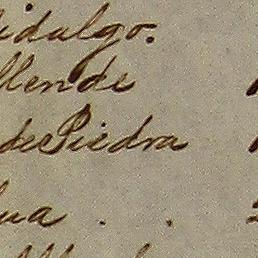 idalgo.
llende
de Piedra
ua . .